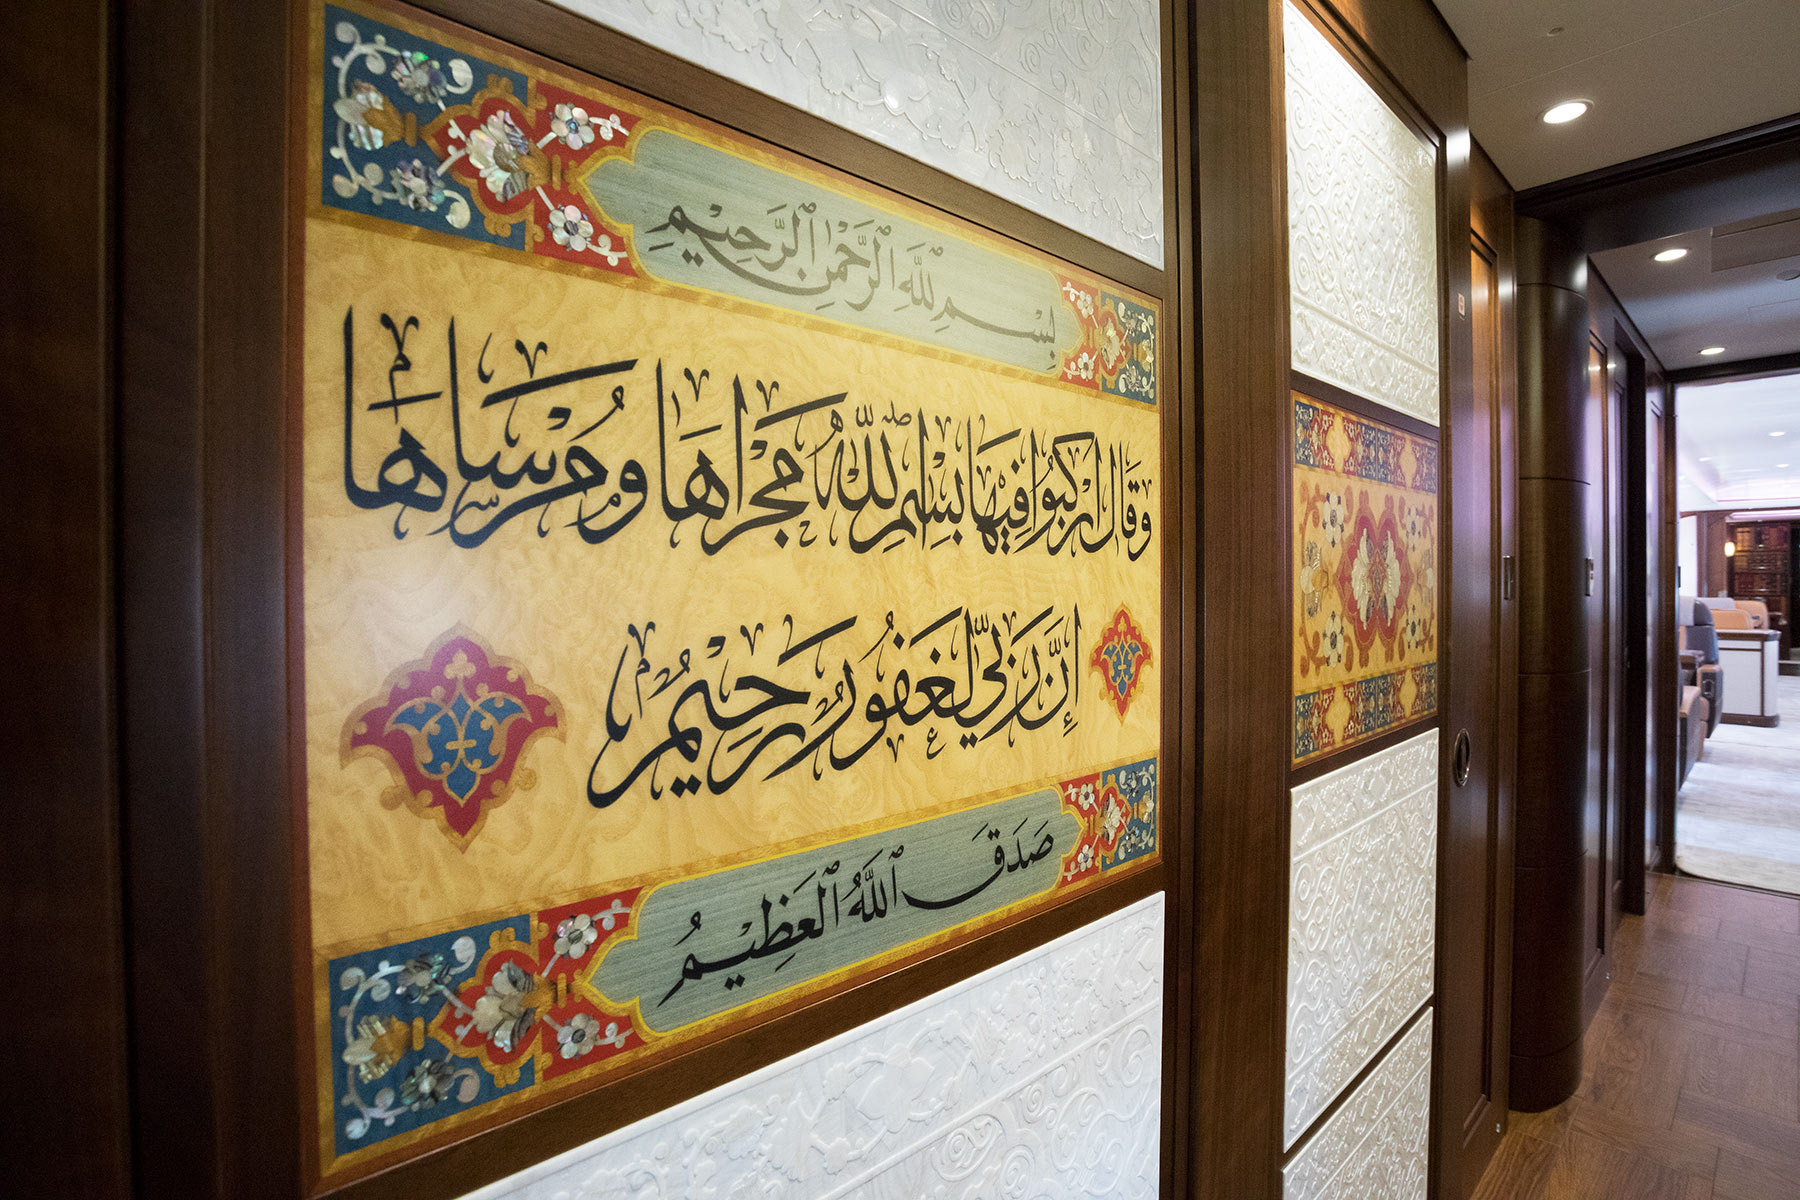 بِسْمِ ٱللَّهِ ٱلرَّحْمَٰنِ ٱلرَّحِيمِ
وَقَالَ ارْكَبُوا فِيهَا بِسْمِ اللَّهِ مَجْرَاهَا وَمُرْسَاهَا
إِنَّ رَبِّي لَغَفُورٌ رَحِيمٌ
صَدَقَ ٱللَّهُ ٱلْعَظِيمُ